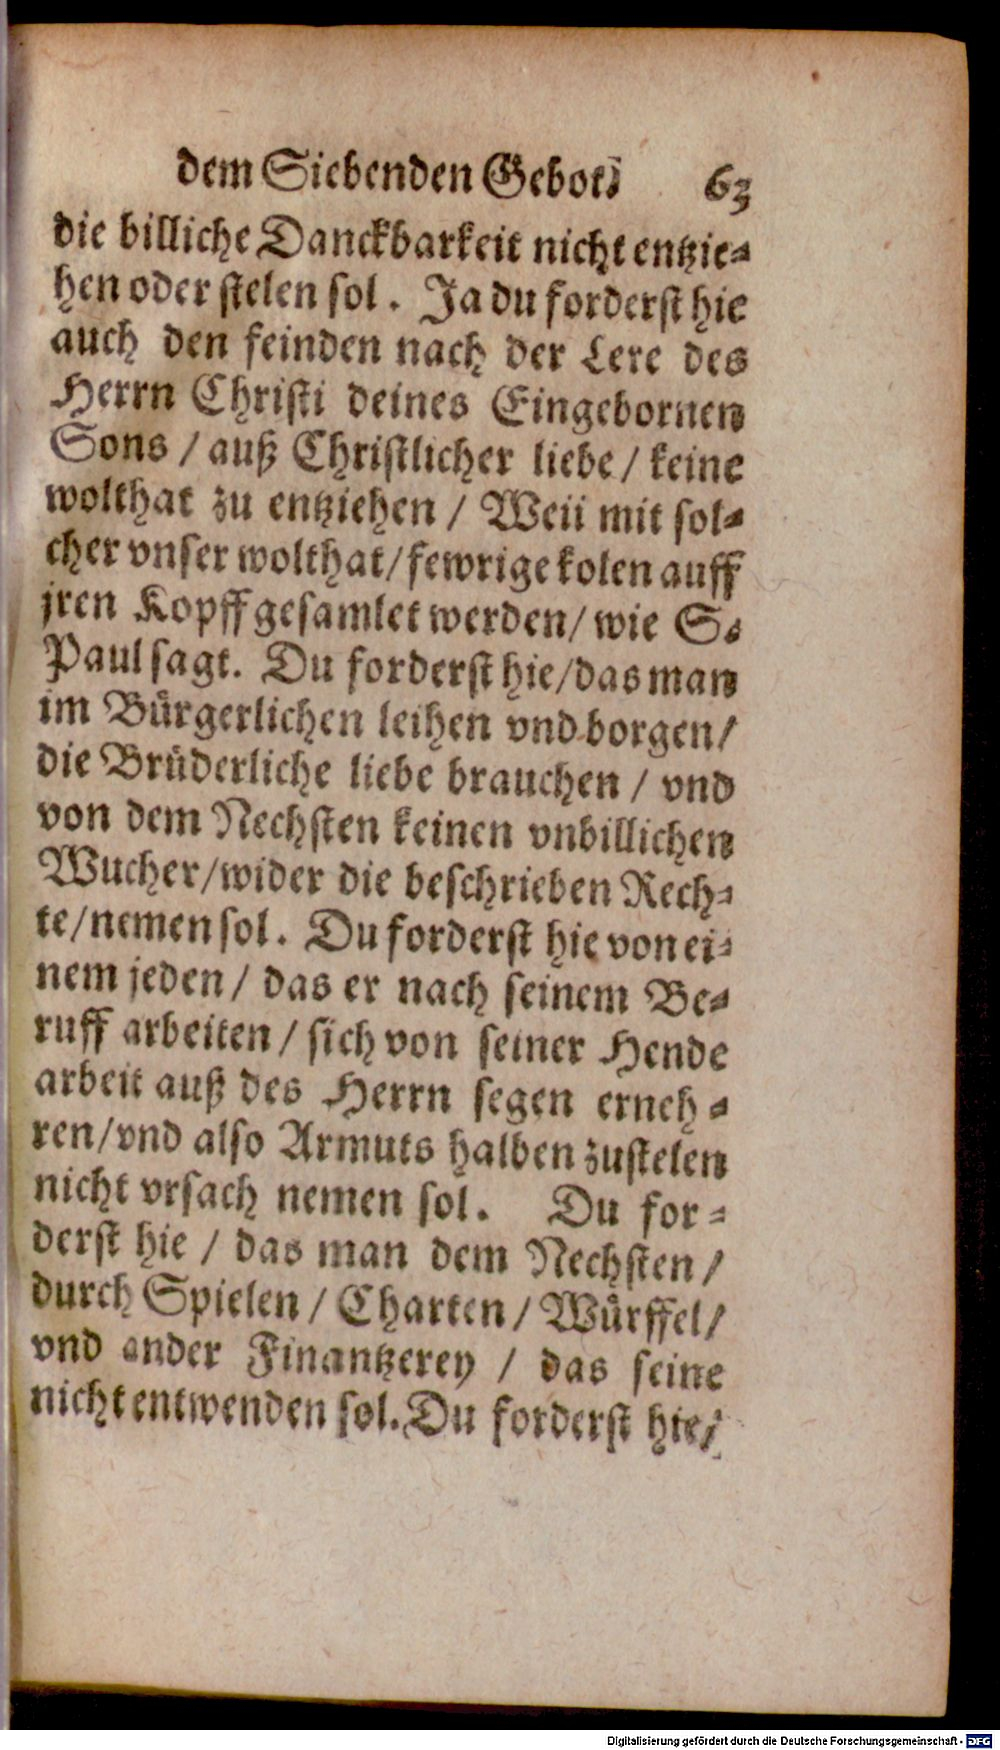 dem Siebenden Gebot. 63
die billiche Danckbarkeit nicht entzie-
hen oder stelen sol. Ja du forderst hie
auch den feinden nach der Lere des
Herrn Christi deines Eingebornen
Sons / auß Christlicher liebe / keine
wolthat zu entziehen / Weil mit sol-
cher vnser wolthat / fewrige kolen auff
jren Kopff gesamlet werden / wie S.
Paul sagt. Du forderst hie / das man
im Bürgerlichen leihen vnd borgen /
die Brüderliche liebe brauchen / vnd
von dem Nechsten keinen vnbillichen
Wucher / wider die beschrieben Rech-
te / nemen sol. Du forderst hie von ei-
nem jeden / das er nach seinem Be-
ruff arbeiten / sich von seiner Hende
arbeit auß des Herrn segen erneh-
ren / vnd also Armuts halben zustelen
nicht vrsach nemen sol. Du for-
derst hie / das man dem Nechsten /
durch Spielen / Charten / Würffel /
vnd ander Finantzerey / das seine
nicht entwenden sol. Du forderst hie /
Digitalisierung gefördert durch die Deutsche Forschungsgemeinschaft - DFG